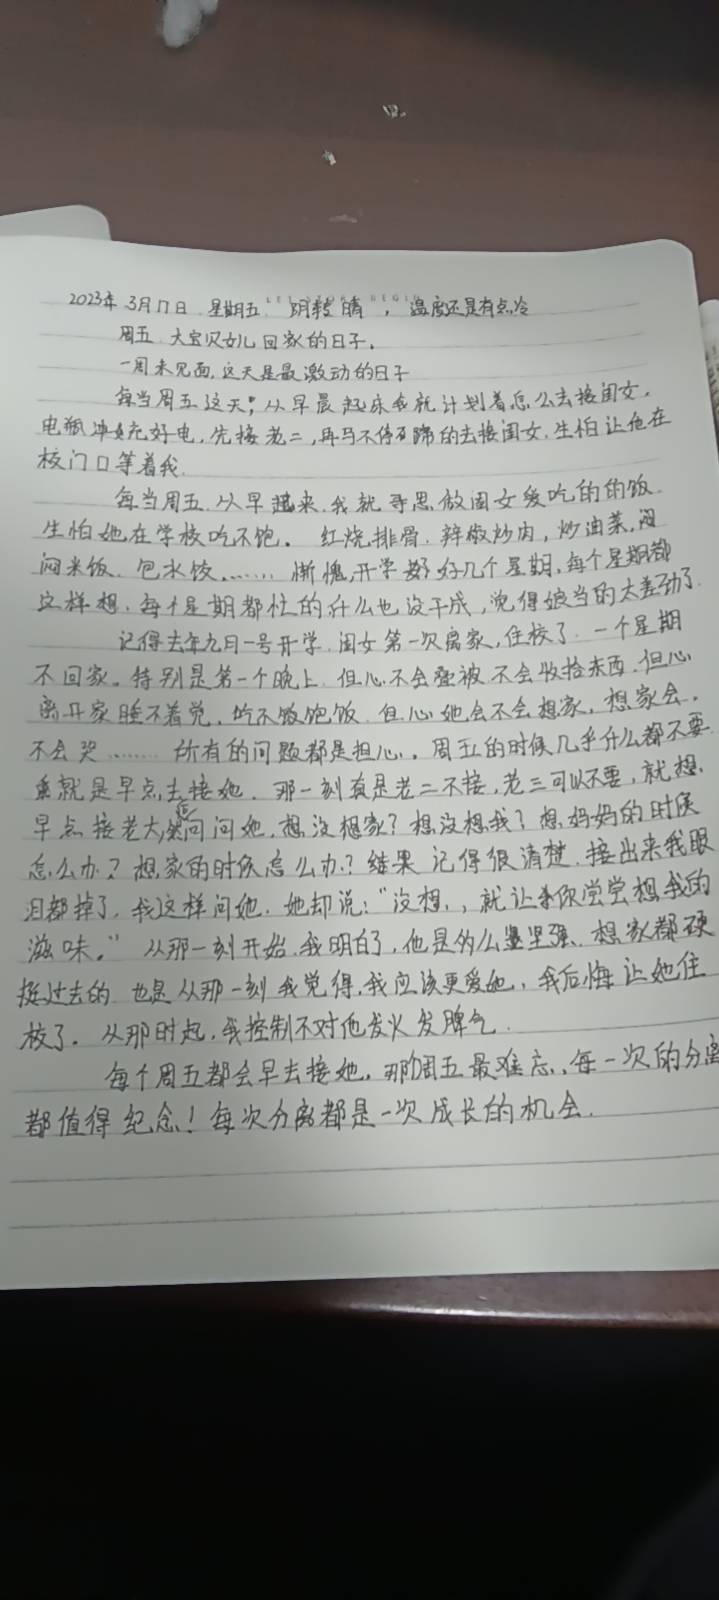 2023年 3月17日 星期五 阴转晴 ，温度还是有点冷
周五 大宝贝女儿回家的日子.
一周未见面,这天是最激动的日子
每当周五这天,从早晨起床我就计划着怎么去接闺女.
电瓶 充好电,先接老二,再马不停蹄的去接闺女.生怕让他在
校门口等着我.
每当周五.从早起来.我就寻思做闺女爱吃的的饭.
生怕她在学校吃不饱. 红烧排骨.辣椒炒肉,炒油菜,闷
闷米饭.包水饺.…… 惭愧,开学都好几个星期,每个星期都
这样想.每个星期都忙的什么也没干成,觉得娘当的太差劲了.
记得去年九月一号开学.闺女第一次离家,住校了.一个星期
不回家。特别是第一个晚上.但心不会叠被.不会收拾东西.但心
离开家睡不着觉,吃不饱饭.但心她会不会想家,想家会.
不会哭……… 所有的问题都是担心.周五的时候几乎什么都不要
就是早点去接她.那一刻真是老二不接,老三可以不要,就想.
早点接老大,然后问问她,想没想家?想没想我?想妈妈的时候
怎么办?想家的时候怎么办?结果 记得很清楚.接出来我眼
泪都掉了.我这样问她.她却说:“没想.,就让你尝尝想我的
滋味。” 从那一刻开始.我明白了,他是多么坚强、想家都硬
挺过去的 也是从那一刻我觉得,我应该更爱她、我后悔让她住
校了. 从那时起,我控制不对他发火发脾气.
每个周五都会早去接她,那个周五最难忘、每一次的分离
都值得纪念!每次分离都是一次成长的机会.